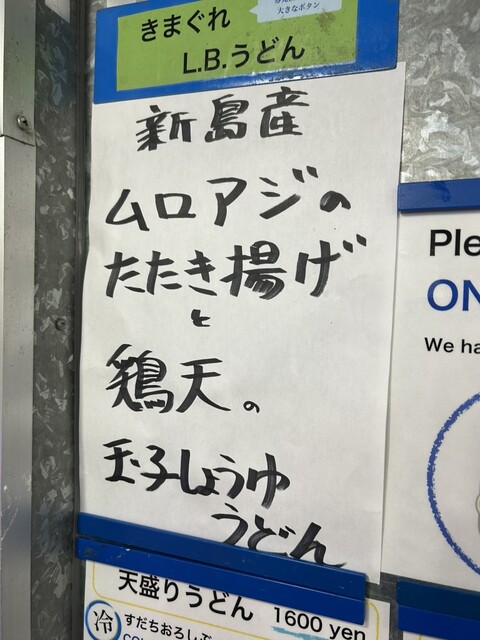 大きなボタン
きまぐれ
L.B.うどん
新島産
ムロアジの
たたき揚げ
と
鶏天の
玉子しょうゆ
うどん
天盛りうどん 1600 yen
冷 すだちおろし
Ple
ON
We ha